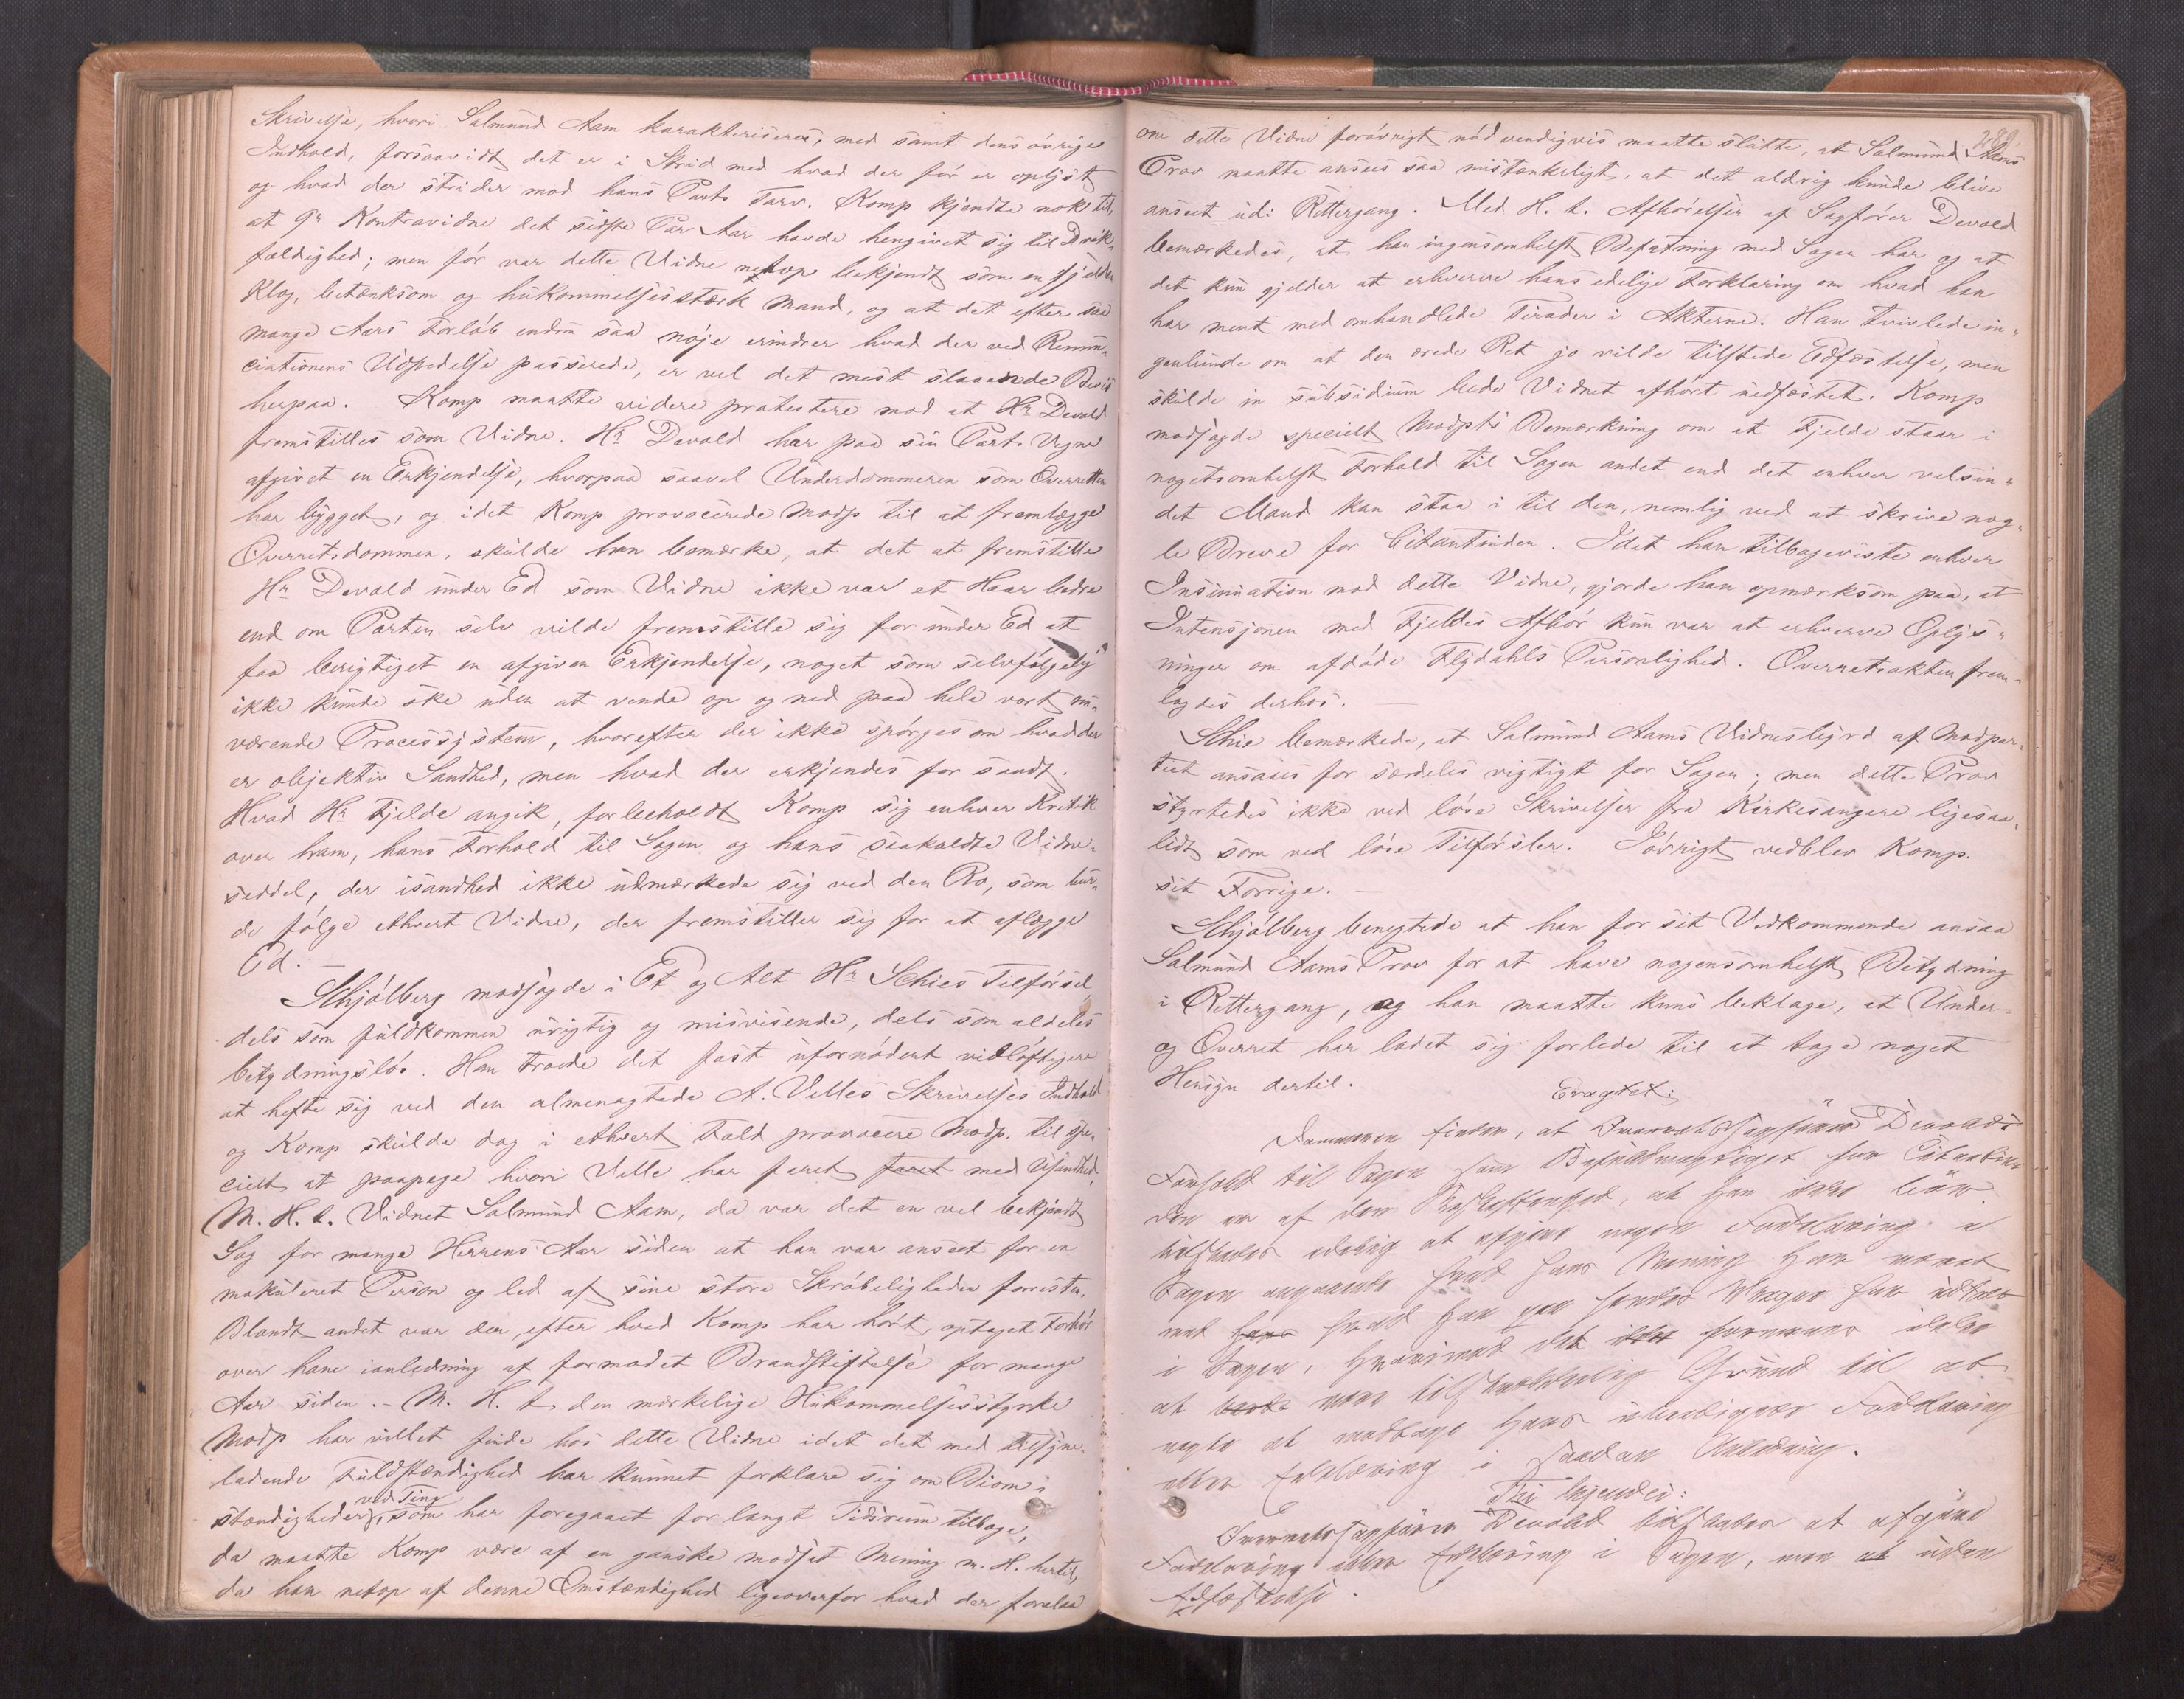 Skrivelse, hvori Salmund Aam karakteriseres, med samt dens øvrige
Indhold, forsaavidt det er i Strid med hvad der før er oplyst
og hvad der strider mod hans Parts Tarv. Komp kjendte nok til,
at 9de Kontravidne det sidste Par Aar havde hengivet sig til Drik-
fældighed; men før var dette Vidne netop bekjendt som en sjelden
klog, betænksom og hukommelsesstærk Mand, og at det efter saa
mange Aars Forløb endnu saa nøje erindrer hvad der ved Renun-
ciationens Udstedelse passerede, er vel det mest slaaende Bevis
herpaa. Komp maatte videre protestere mod at Hr Devold
fremstilles som Vidne. Hr Devold har paa sin Parts Vegne
afgivet en Erkjendelse, hvorpaa saavel Underdommeren som Overretten
har bygget, og idet Komp provocerede Modp til at fremlægge
Overretsdommen, skulde han bemærke, at det at fremstille
Hr Devold under Ed som Vidne ikke var et Haar bedre
end om Parten selv vilde fremstille sig for under Ed at
faa berigtiget en afgiven Erkjendelse, noget som selvfølgelig
ikke kunde ske uden at vende op og ned paa hele vort nu-
værende Processystem, hvorefter der ikke spørges om hvad der
er objektiv Sandhed, men hvad der erkjendes for sandt.
Hvad Hr Fjelde angik, forbeholdt Komp sig enhver Kritik
over ham, hans Forhold til Sagen og hans saakaldte Vidne-
seddel, der isandhed ikke udmærkede sig ved den Ro, som bur-
de følge ethvert Vidne, der fremstiller sig for at aflægge
Ed. —
Schjølberg modsagde i Et og Alt Hr Schies Tilførsel
dels som fuldkommen urigtig og misvisende, dels som aldeles
betydningsløs. Han troede det fast ufornødent vidløftigere
at hefte sig ved den almenagtede A. Velles Skrivelses Indhold
og Komp skulde dog i ethvert Fald provocere Modp. til spe-
cielt at paapege hvori Velle har faret faret med Usandhed.
M. H. t. Vidnet Salmund Aam, da var det en vel bekjendt
Sag for mange Herrens Aar siden at han var anseet for en
makuleret Person og led af sine store Skrøbeligheder
Blandt andet var der, efter hvad Komp har hørt, optaget Forhør
over hane ianledning af formodet Brandstiftelse for mange
Aar siden. — M. H. t. den mærkelige Hukommelsesstyrke
Modp har villet finde hos dette Vidne idet det med tilsyne-
ladende Fuldstændighed har kunnet forklare sig om Biom-
stændigheder ved Ting, som har foregaaet for langt Tidsrum tilbage,
da maatte Komp være af en ganske modsat Mening m. H. hertil,
da han netop af denne Omstændighed ligeoverfor hvad der forelaa
om dette Vidne forøvrigt nødvendigvis maatte slutte, at Salmund Aams
Prov maatte ansees saa mistænkeligt, at det aldrig kunde blive
anseet udi Rettergang. Med H. t. Afhørelsen af Sagfører Devold
bemærkedes, at han ingensomhelst Befatning med Sagen har og at
det kun gjelder at erhverve hans edelige Forklaring om hvad han
har ment med omhandlede Tirader i Akterne. Han tvivlede in-
genlunde om at den ærede Ret jo vilde tilstede Edfæstelse, men
skulde in subsidium bede Vidnet afhørt uedfæstet. Komp
modsagde specielt Modpts Bemærkning om at Fjelde staar i
nogetsomhelst Forhold til Sagen andet end det enhver velsin-
det Mand kan staa i til den, nemlig ved at skrive nog-
le Breve for Citantinden. Idet han tilbageviste enhver
Insinuation mod dette Vidne, gjorde han opmærksom paa, at
Intensjonen med Fjeldes Afhør kun var at erhverve Oplys-
ninger om afdøde Flydahls Personlighed. Overretsakten frem-
lagdes derhos. —
Schie bemærkede, at Salmund Aams Vidnesbyrd af Modpar-
tiet ansaaes for særdeles vigtigt for Sagen; men dette Prov
styrtedes ikke ved løse Skrivelser fra Kirkesangere ligesaa-
lidt som ved løse Tilførsler. Iøvrigt vedblev Komp.
sit Forrige. —
Schjølberg benegtede at han for sit Vedkommende ansaa
Salmund Aams Prov for at have nogensomhelst Betydning
i Rettergang, og han maatte kuns beklage, at Under-
og Overret har ladet sig forlede til at tage noget
Hensyn dertil.
Eragtet:
Dommeren finder, at Overretssagfører Devolds
Forhold til Sagen som Befuldmægtiget for Citantin-
den er af den Beskaffenhed, at han ikke bør
tilstedes edelig at afgive nogen Forklaring i
Sagen angaaende hvad hans Mening har været
med hans hvad han paa hendes Vegne har udtalt
i Sagen, hvorimod det ikke formenes ikke
at være tilstrækkelig Grund til at
negte at modtage hans ubeedigede Forklaring
eller Erklæring i saadan Anledning.
Thi kjendes:
Overretssagfører Devold tilstedes at afgive
Forklaring eller Erklæring i Sagen, men uden
Edfæstelse.